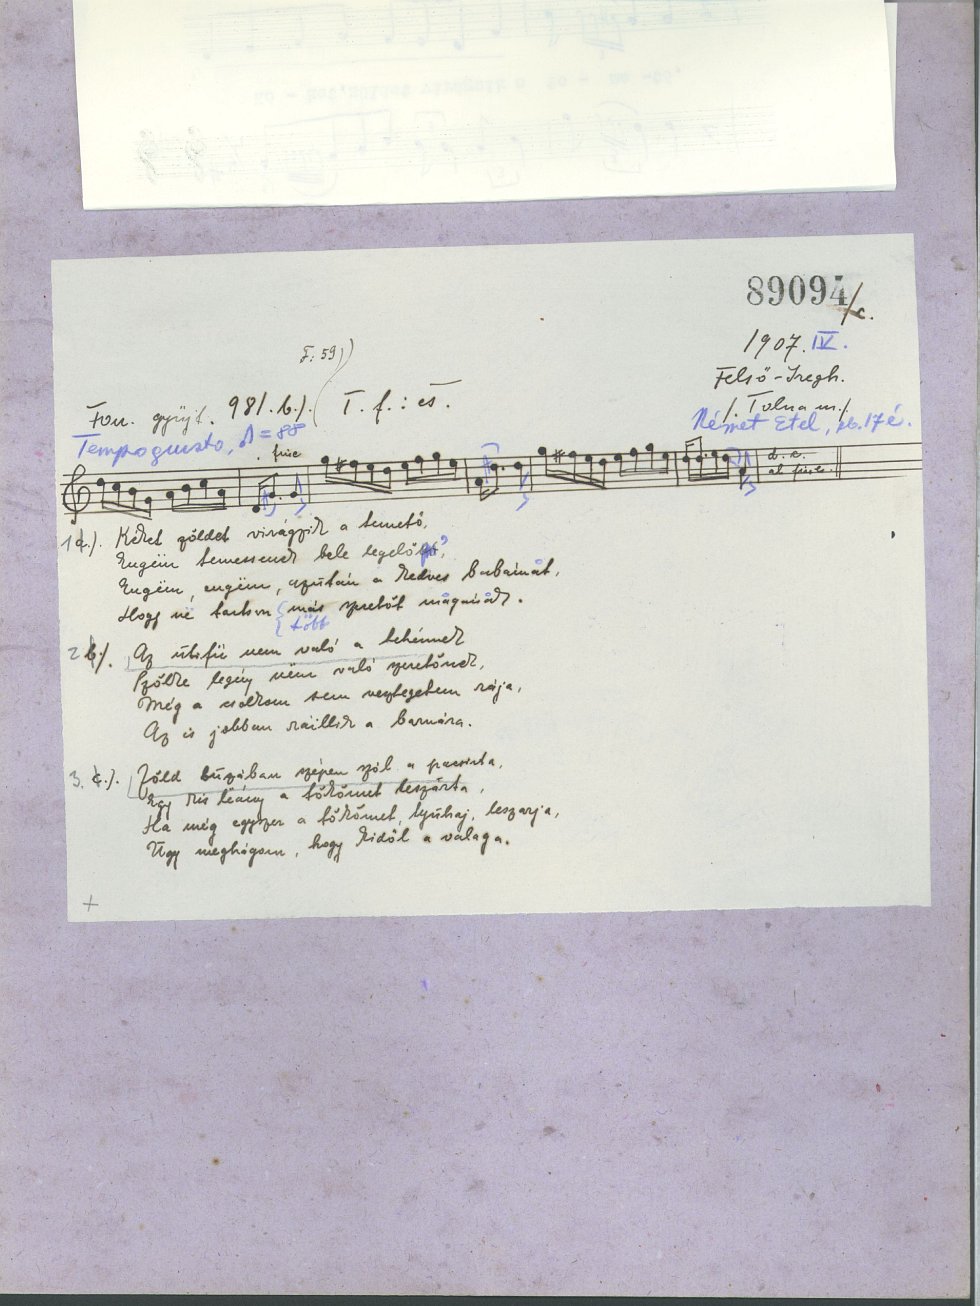 89094/c.
1907. IV.
Felső-Iregh.
/. Tolna m./.
F: 59)
Fon. gyüjt. 981. b.). T. f.: es.
Német Etel, 17 é.
Tempo giusto, ♪ = 88
fine
d. c.
al fine.
1 a.). Kéket zöldet virágzik a temető,
Engëm temessenek bele legelőbb,
Engëm, engëm, azután a kedves babámat,
Hogy në tartson más szeretőt magának.
több
2 b/. Az útifű nem való a tehénnek
Szőke legény nëm való szeretőnek,
Még a csókom sem vesztegetem rája,
Az is jobban ráillik a barnára.
3. c.). Zöld búzában szépen szól a pacsirta,
Egy kis lëány a tökömet leszarta,
Ha még egyszer a tökömet, tyuhaj, leszarja,
Úgy meghágom, hogy kidől a valaga.
+